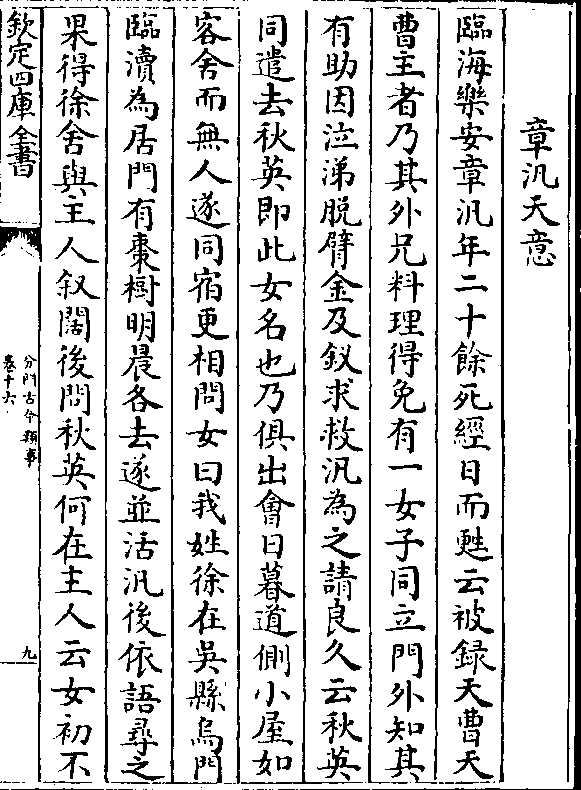 章汎天意
臨海樂安章汎年二十餘死經日而甦云被録天曹天
曹主者乃其外兄料理得免有一女子同立門外知其
有助因泣涕脱臂金及釵求救汎為之請良久云秋英
同遣去秋英即此女名也乃俱出會日暮道側小屋如
客舍而無人遂同宿更相問女曰我姓徐在吳縣烏門
臨瀆為居門有棗樹明晨各去遂並活汎後依語尋之
果得徐舍與主人叙闊後問秋英何在主人云女初不
欽定四庫全書
分門古今類事
卷十六
九